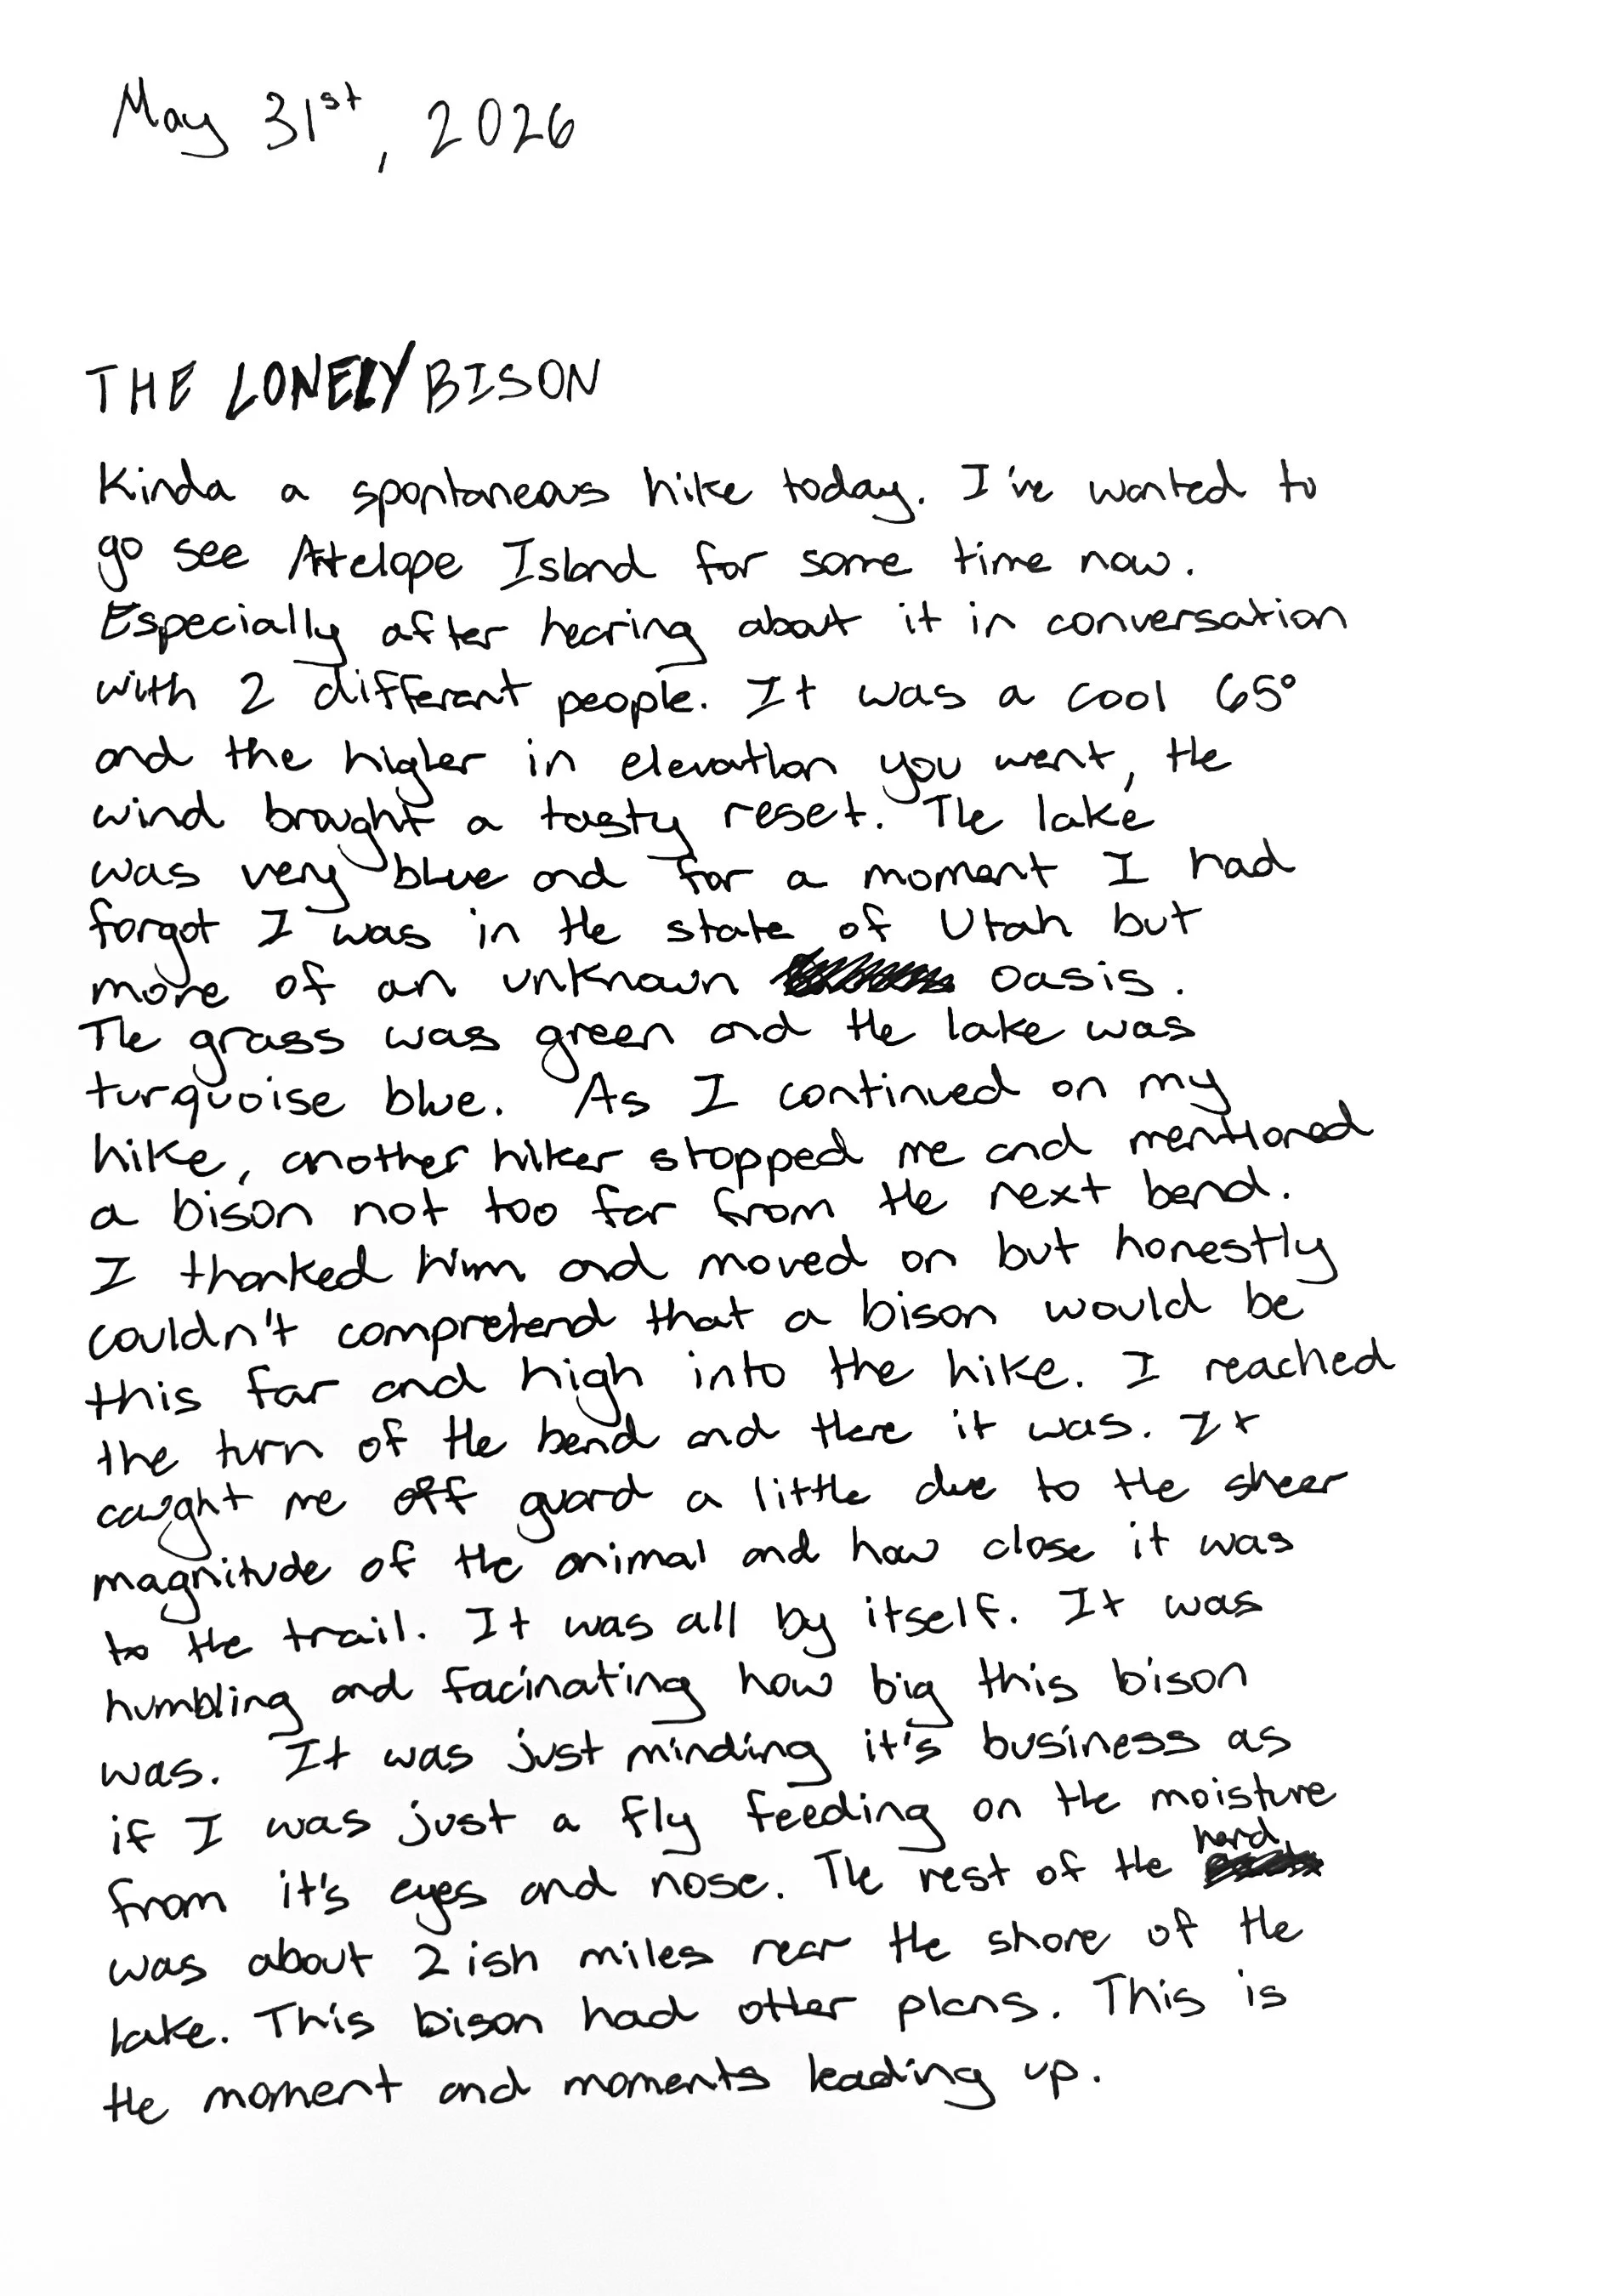 May 31st, 2026
THE LONELY BISON
Kinda a spontaneous hike today. I've wanted to
go see Antelope Island for some time now.
Especially after hearing about it in conversation
with 2 different people. It was a cool 65°
and the higher in elevation you went, the
wind brought a tasty reset. The lake
was very blue and for a moment I had
forgot I was in the state of Utah but
more of an unknown oasis.
The grass was green and the lake was
turquoise blue. As I continued on my
hike, another hiker stopped me and mentioned
a bison not too far from the next bend.
I thanked him and moved on but honestly
couldn't comprehend that a bison would be
this far and high into the hike. I reached
the turn of the bend and there it was. It
caught me off guard a little due to the sheer
magnitude of the animal and how close it was
to the trail. It was all by itself. It was
humbling and facinating how big this bison
was. It was just minding it's business as
if I was just a fly feeding on the moisture
from it's eyes and nose. The rest of the herd
was about 2 ish miles near the shore of the
lake. This bison had other plans. This is
the moment and moments leading up.